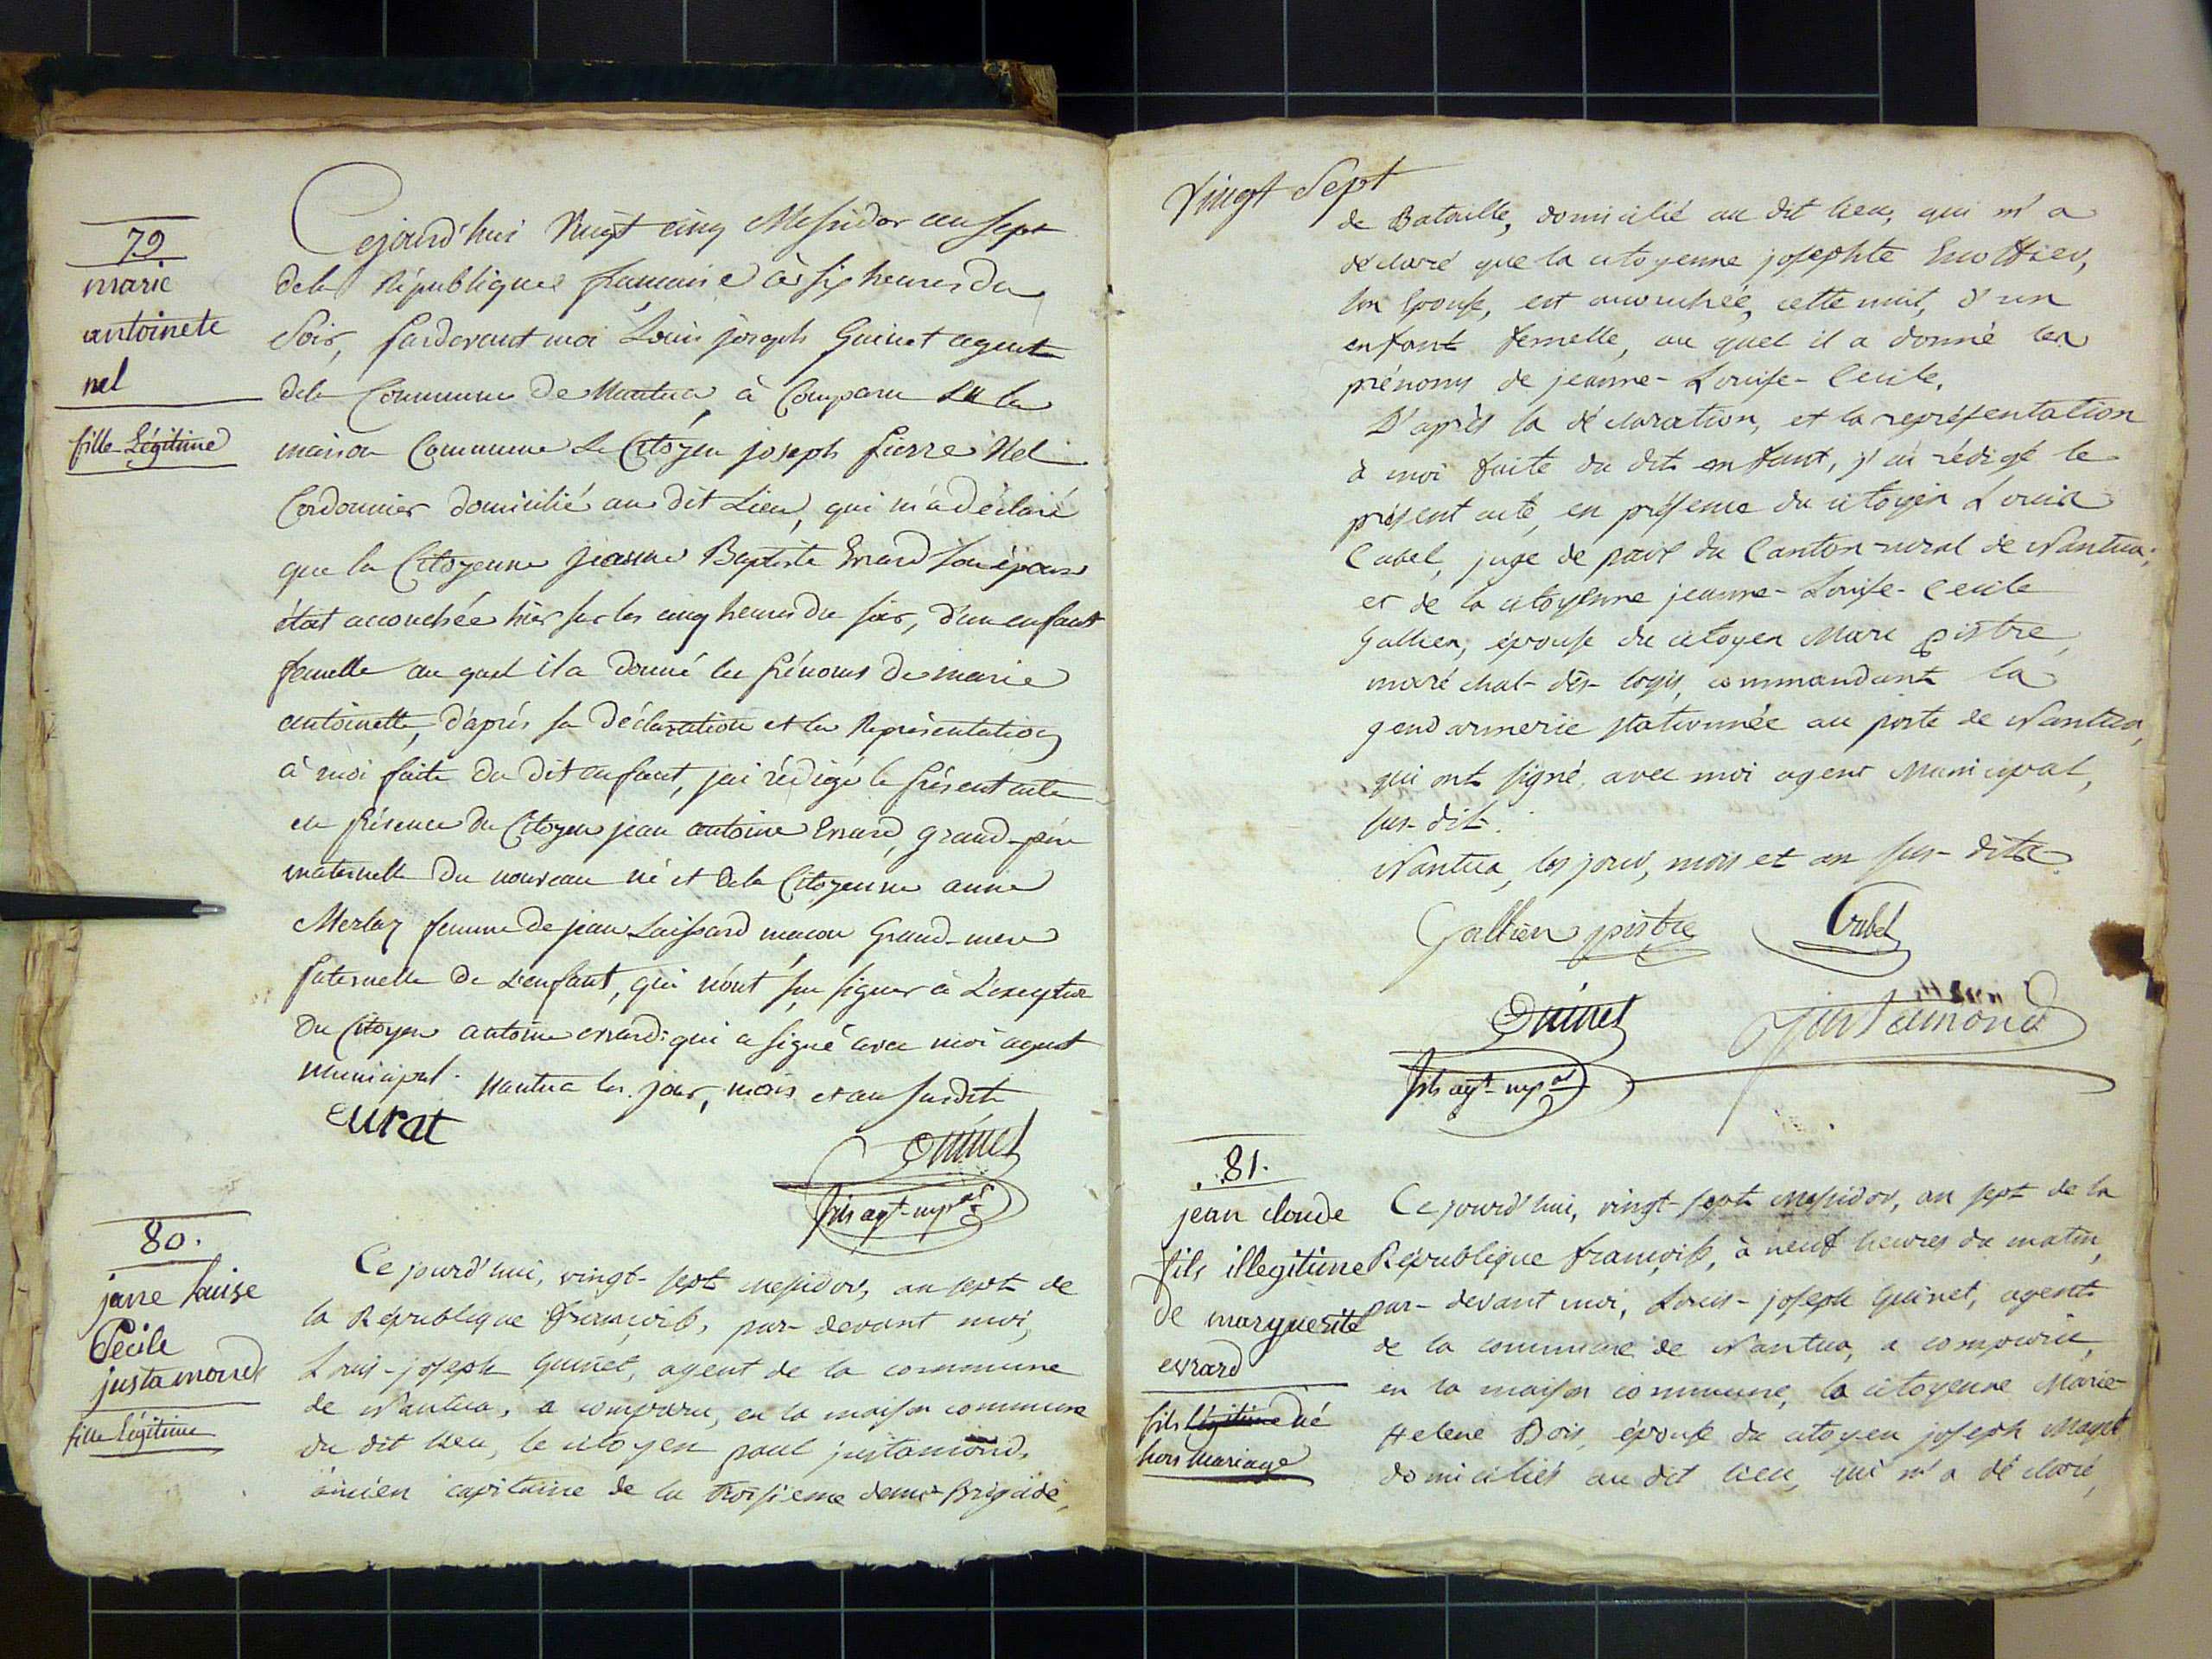 79
marie
antoinete
nel
fille Légitime
Cejourd'hui Vingt cinq Messidor an sept
dela République francaise à six heures du
Soir, Pardevant moi Louis joseph Guinet agent
dela Commune De Nantua, à Comparu en la
maison Commune Le Citoyen joseph Pierre Nel
Cordonnier domicilié au dit Lieu, qui m'a déclaré
que la Citoyenne jeanne Baptiste Evrard son épouse
était accouchée hier sur les cinq heures du soir, d'un enfant
femelle au quel il a donné les Prénoms de marie
antoinette, d'après sa déclaration et la Représentation
à moi faite du dit enfant, j'ai rédigé le présent acte
en Présence du Citoyen jean antoine Evrard, grand-père
maternelle du nouveau né et dela Citoyenne anne
Merloz femme de jean Laissard macon Grand-mere
Paternelle de L'enfant, qui n'ont su signer à L'exception
du Citoyen antoine evrard qui a signé avec moi agent
municipal. Nantua les jour, mois et an susdits
eurat
Guinet
fils agt mpal
80.
jane louise
Cécile
justamond
fille Légitime
Ce jourd'hui, vingt-sept messidor, an sept de
la République françoise, par-devant moi,
Louis-joseph Guinet, agent de la commune
de Nantua, a comparu, en la maison commune
du dit lieu, le citoyen paul justamond,
ancien capitaine de la troisieme demi-Brigade,
Vingt Sept
de Bataille, domicilié au dit lieu, qui m'a
déclaré que la citoyenne josephte
son Epouse, est accouchée, cette nuit, d'un
enfant femelle, au quel il a donné les
prénoms de jeanne-Louise-Cecile.
D'après la déclaration, et la représentation
à moi faite du dit enfant, j'ai rédigé le
présent acte, en présence du citoyen Louis
Cabel, juge de paix du Canton-rural de Nantua;
et de la citoyenne jeanne-Louise-Cecile
Gallien, épouse du citoyen Marc pistre,
maréchal-des-logis, commandant la
gendarmerie stationnée au poste de Nantua,
qui ont signé avec moi agent Municipal,
sus-dit.
Nantua, les jour, mois et an sus-dits.
Gallien pistre
Cabel
Guinet
fils agt mpal
Justamond
81.
jean claude
fils illegitime
de marguerite
evrard
fils légitime né
hors mariage
Ce jourd'hui, vingt-sept messidor, an sept de la
République françoise, à neuf heures du matin,
par-devant moi, Louis-joseph Guinet, agent
de la commune de Nantua, a comparu,
en la maison commune, la citoyenne Marie-
Helene Bois, épouse du citoyen joseph
domiciliés au dit lieu, qui m'a déclaré,